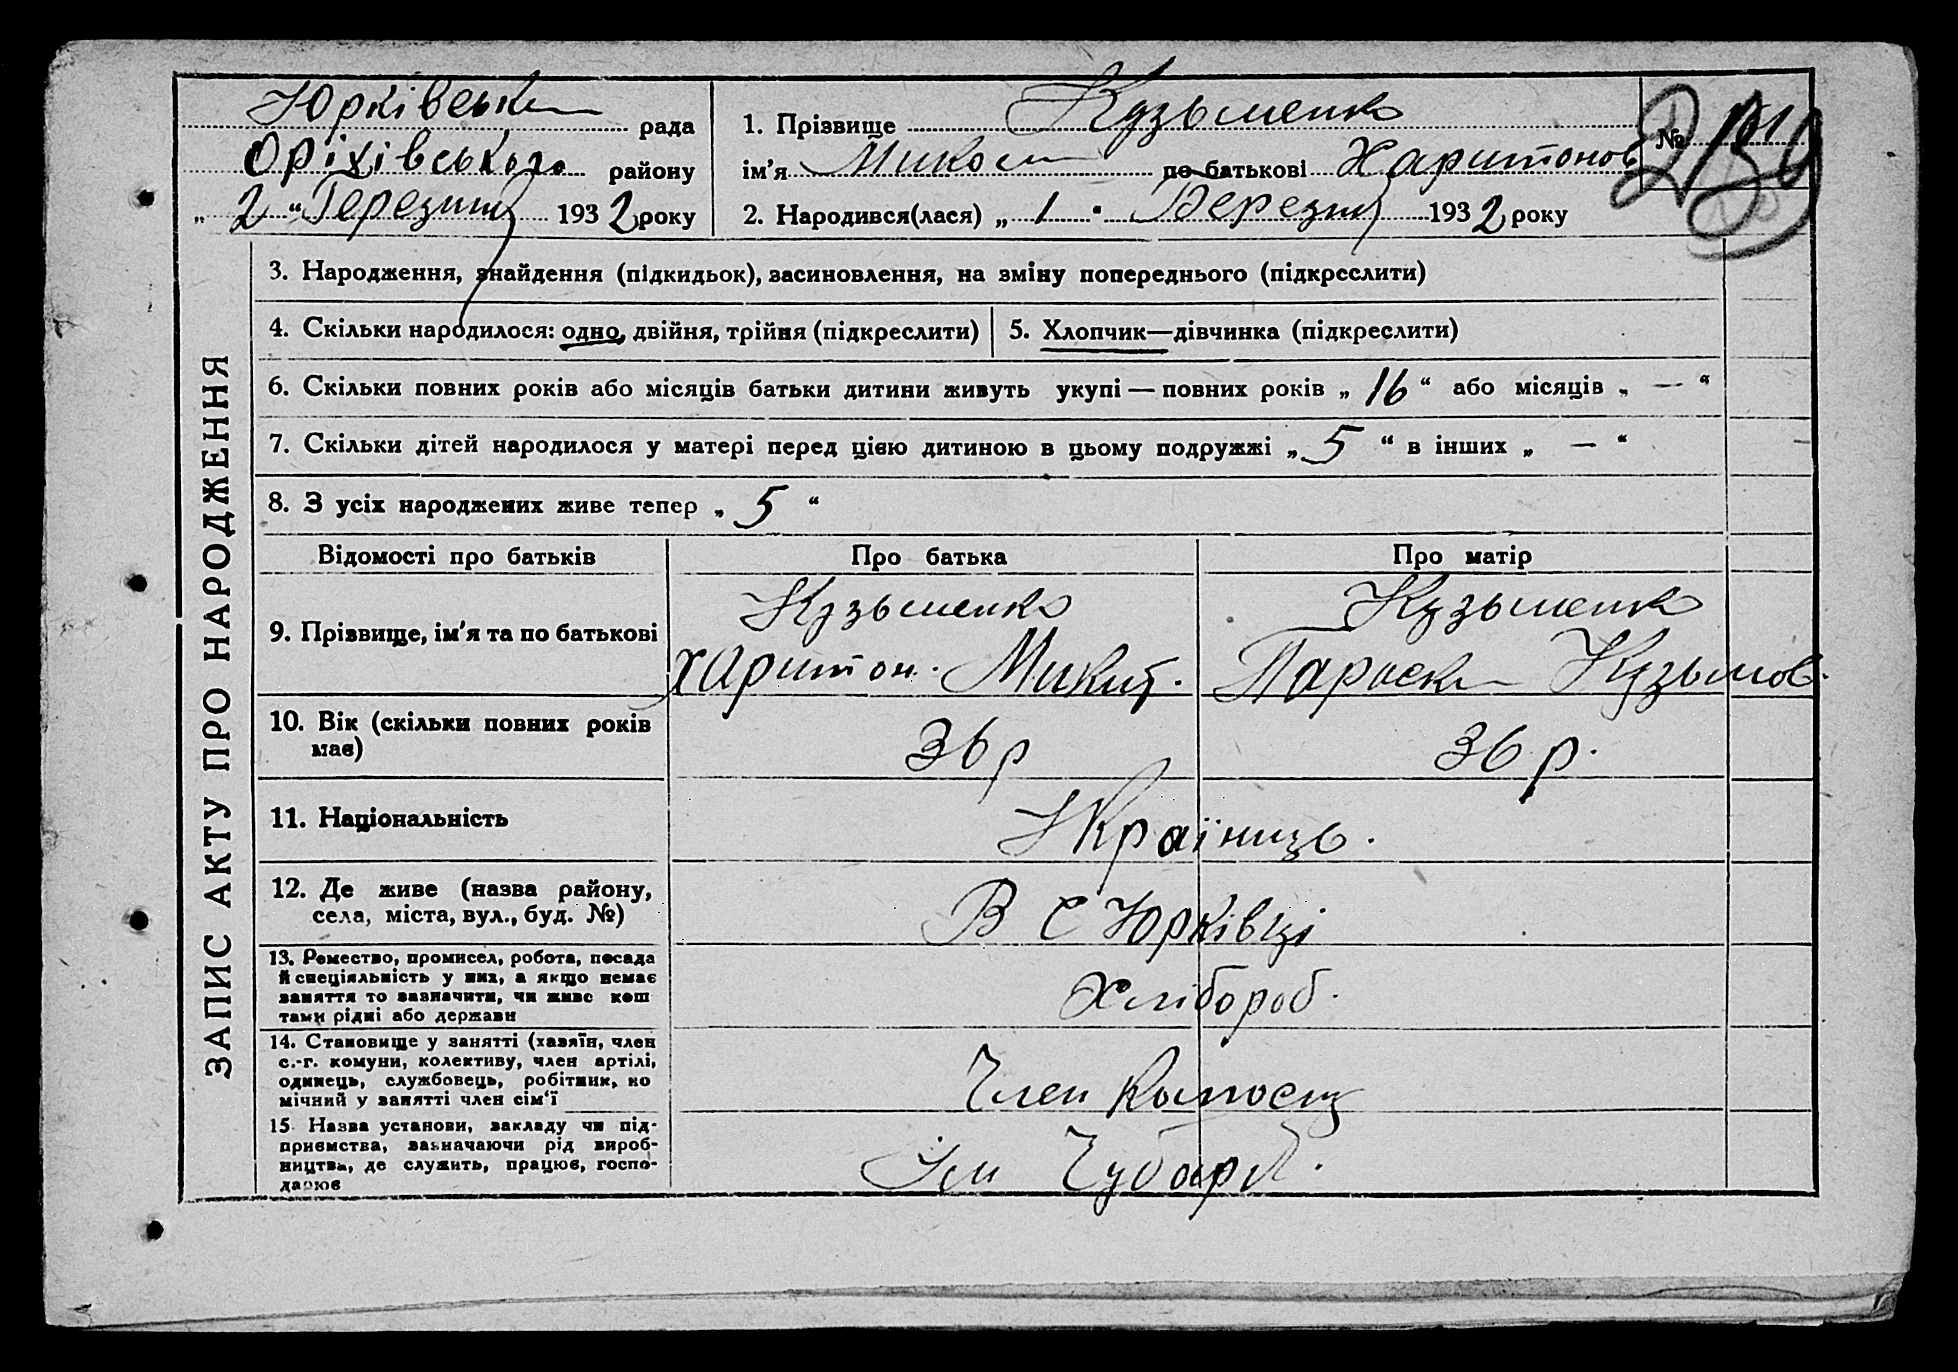 ЗАПИС АКТУ ПРО НАРОДЖЕННЯ
Юрківська рада
Оріхівського району
„ 2 “ Березня 1932 року
1. Прізвище Кузьменко
ім'я Микола по батькові Харитонов
№
2. Народився(лася) „ 1 " Березня 1932 року
3. Народження, знайдення (підкидьок), засиновлення, на зміну попереднього (підкреслити)
4. Скільки народилося: одно, двійня, трійня (підкреслити)
5. Хлопчик—дівчинка (підкреслити)
6. Скільки повних років або місяців батьки дитини живуть укупі — повних років „ 16 “ або місяців „ — “
7. Скільки дітей народилося у матері перед цією дитиною в цьому подружжі „ 5 “ в інших „ — “
8. З усіх народжених живе тепер „ 5 “
Відомості про батьків
Про батька
Про матір
9. Прізвище, ім'я та по батькові
Кузьменко
Харитон. Микит.
Кузьменко
Параска Кузьмов.
10. Вік (скільки повних років
має)
36 р
36 р.
11. Національність
Українць.
12. Де живе (назва району,
села, міста, вул., буд. №)
В с Юрківці
13. Ремество, промисел, робота, посада
й спеціяльність у них, а якщо немає
заняття то зазначити, чи живе кош
тами рідні або держави
Хлібороб.
14. Становище у занятті (хазяїн, член
с.-г. комуни, колективу, член артілі,
одинець, службовець, робітник, по
мічний у занятті член сім'ї
Член
15. Назва установи, закладу чи під-
приємства, зазначаючи рід вироб-
ництва, де служить, працює, госпо-
дарює
Ім Чубаря.